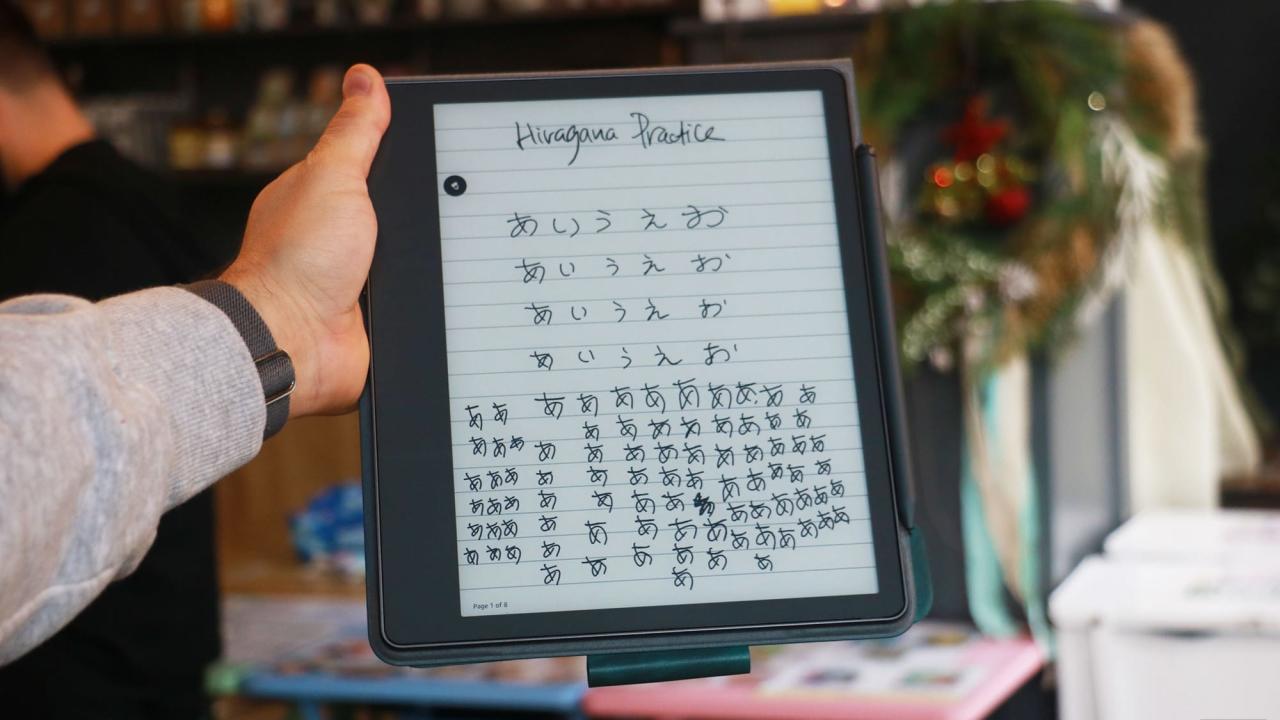 Hiragana Practice
あ い う え お
あ い う え お
あ い う え お
あ い う え お
あ あ あ あ あ あ あ あ あ あ あ
あ あ あ あ あ あ あ あ
あ あ あ あ あ あ あ あ あ あ あ あ あ
あ あ あ あ あ あ あ あ あ あ あ あ あ
あ あ あ あ あ あ あ あ あ あ あ あ あ
あ あ あ あ あ あ あ あ あ あ あ あ あ あ
あ あ あ あ あ あ あ あ
あ あ あ
Page 1 of 8